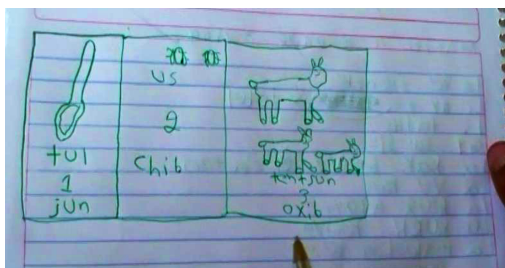 tul
1
jun
us
2
Chib
tentjun
3
oxib